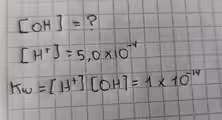 [OH] = ?
[H⁺] = 5,0×10⁻⁴
Kw = [H⁺] [OH] = 1 x 10⁻¹⁴